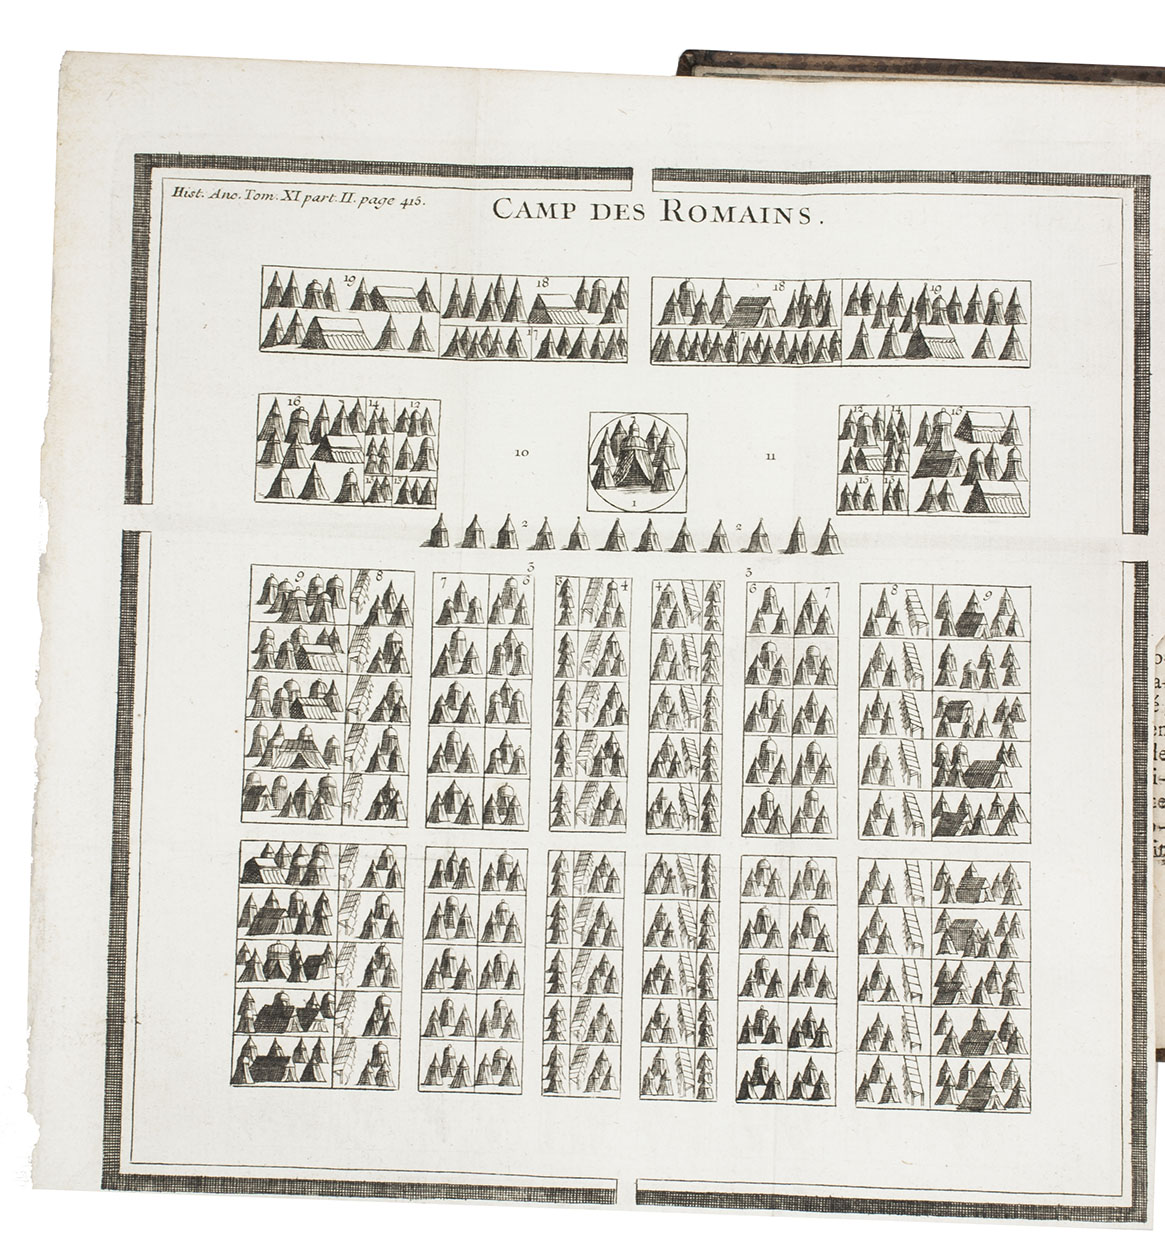 Hist. Anc. Tom. XI part. II. page 415.
CAMP DES ROMAINS.
19 18 18 19
17
16 14 12 2 12 14 16
10 11
13 13 13
1
2 2
3 3
9 8 7 6 5 4 4 5 6 7 8 9